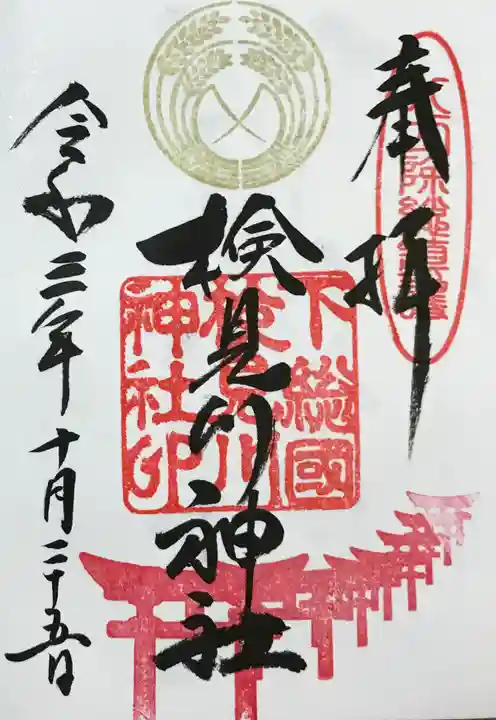 奉拝
八方除総鎮護
検見川神社
下総國
検見川
神社印
令和三年十月二十五日